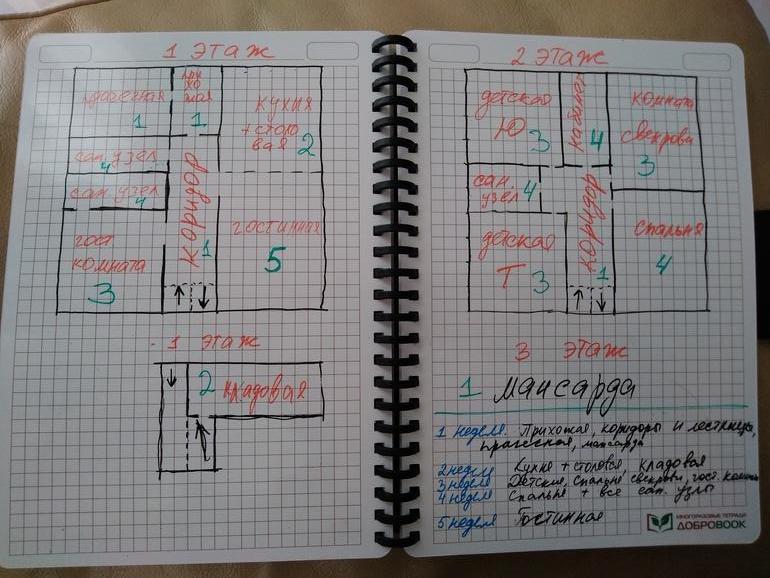 1 этаж
прачечная
1
при
хо
жая
1
кухня
+ столо
вая 2
сан. узел
4
сан. узел
4
коридор
1
гост.
комната
3
гостинная
5
1 этаж
2 кладовая
2 этаж
детская
Ю 3
кабинет
4
комната
свекрови
3
сан.
узел 4
детская
Т 3
коридор
1
спальня
4
3 этаж
1 мансарда
1 неделя. Прихожая, коридоры и лестница,
прачесная, мансарда
2 недел Кухня + столовая, кладовая
3 недел Детские, спальня свекрови, гост. комн
4 недел Спальня + все сан. узлы
5 недел Гостинная
МНОГОРАЗОВЫЕ ТЕТРАДИ
ДОБРОBOOK